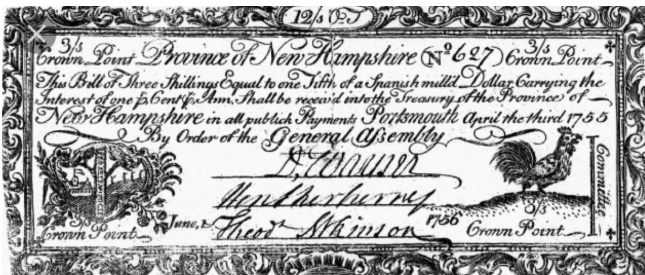 12/s O:T
3/s Province of New Hampshire (No 627) 3/s
Crown Point Crown Point
This Bill of Three Shillings Equal to one Fifth of a Spanish mill'd Dollar Carrying the
Interest of one p. Cent p. Ann. Shall be receiv'd into the Treasury of the Province of
New Hampshire in all publick Payments Portsmouth April the third 1755
By Order of the General Assembly
Committee
Hen Sherburne
3/s June, 1756 3/s
Crown Point Theodr Atkinson Crown Point